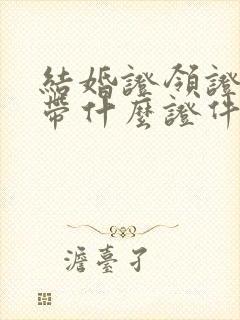 結婚證領證
帶什麼證件
澹臺孑